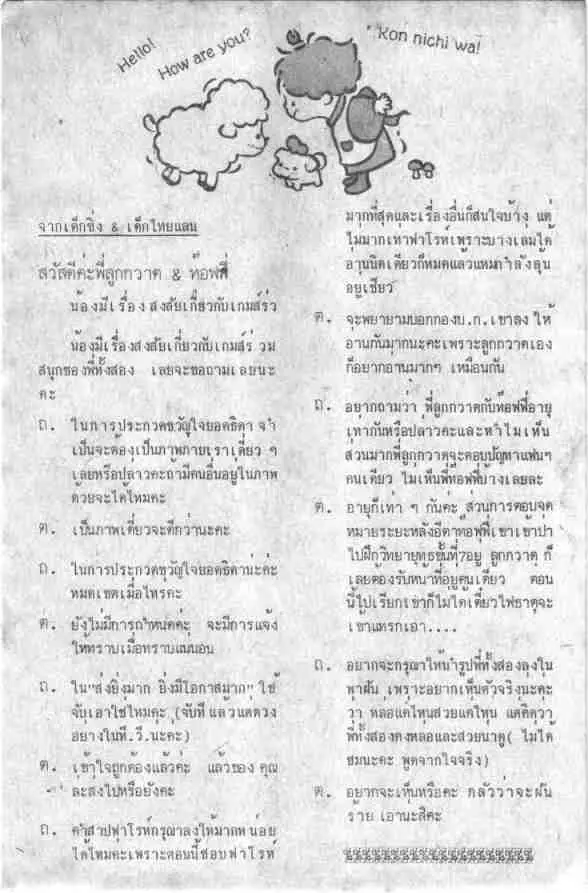 Hello!
How are you?
Kon nichi wa!
จากเด็กซิ่ง & เด็กไทยแลน
สวัสดีค่ะพี่ลูกกวาด & ท๊อฟฟี่
น้องมีเรื่องสงสัยเกี่ยวกับเกมส์ร่ว
น้องมีเรื่องสงสัยเกี่ยวกับเกมส์ร่วม
สนุกของพี่ทั้งสอง เลยจะขอถามเลยนะ
คะ
ถ. ในการประกวดขวัญใจยอดธิดา จำ
เป็นจะต้องเป็นภาพถ่ายเราเดี่ยว ๆ
เลยหรือปล่าวคะถ้ามีคนอื่นอยู่ในภาพ
ด้วยจะได้ไหมคะ
ต. เป็นภาพเดี่ยวจะดีกว่านะคะ
ถ. ในการประกวดขวัญใจยอดธิดาน่ะค่ะ
หมดเขตเมื่อไหร่คะ
ต. ยังไม่มีการกำหนดค่ะ จะมีการแจ้ง
ให้ทราบเมื่อทราบแน่นอน
ถ. ใน"ส่งยิ่งมาก ยิ่งมีโอกาสมาก" ใช้
จับเอาใช่ไหมคะ (จับที แล้วแต่ดวง
อย่างในที.วี.นะคะ)
ต. เข้าใจถูกต้องแล้วค่ะ แล้วของ คุณ
ละส่งไปหรือยังคะ
ถ. คำสาปฟาโรห์กรุณาลงให้มากหน่อย
ได้ไหมคะเพราะตอนนี้ชอบฟาโรห์
มากที่สุดและเรื่องอื่นก็สนใจบ้าง แต่
ไม่มากเท่าฟาโรห์เพราะบางเล่มได้
อ่านนิดเดียวก็หมดแล้วแหมกำลังลุ้น
อยู่เชียว
ต. จะพยายามบอกกองบ.ก.เขาลง ให้
อ่านกันมากนะคะเพราะลูกกวาดเอง
ก็อยากอ่านมากๆ เหมือนกัน
ถ. อยากถามว่า พี่ลูกกวาดกับท๊อฟฟี่อายุ
เท่ากันหรือปล่าวคะและทำไมเห็น
ส่วนมากพี่ลูกกวาดจะตอบปัญหาแฟนๆ
คนเดียว ไม่เห็นพี่ท๊อฟฟี่บ้างเลยละ
ต. อายุก็เท่า ๆ กันค่ะ ส่วนการตอบจด
หมายระยะหลังอีตาท๊อฟฟี่เขาเข้าป่า
ไปฝึกวิทยายุทธขั้นที่7อยู่ ลูกกวาด ก็
เลยต้องรับหน้าที่อยู่คนเดียว ตอน
นี้ไปเรียกเขาก็ไม่ได้เดี๋ยวไฟธาตุจะ
เข้าแทรกเอา....
ถ. อยากจะกรุณาให้นำรูปพี่ทั้งสองลงใน
พาฝัน เพราะอยากเห็นตัวจริงนะค่ะ
ว่า หล่อแค่ไหนสวยแค่ไหน แต่คิดว่า
พี่ทั้งสองคงหล่อและสวยน่าดู( ไม่ได้
ชมนะคะ พูดจากใจจริง)
ต. อยากจะเห็นหรือคะ กลัวว่าจะฝัน
ร้าย เอานะสิคะ